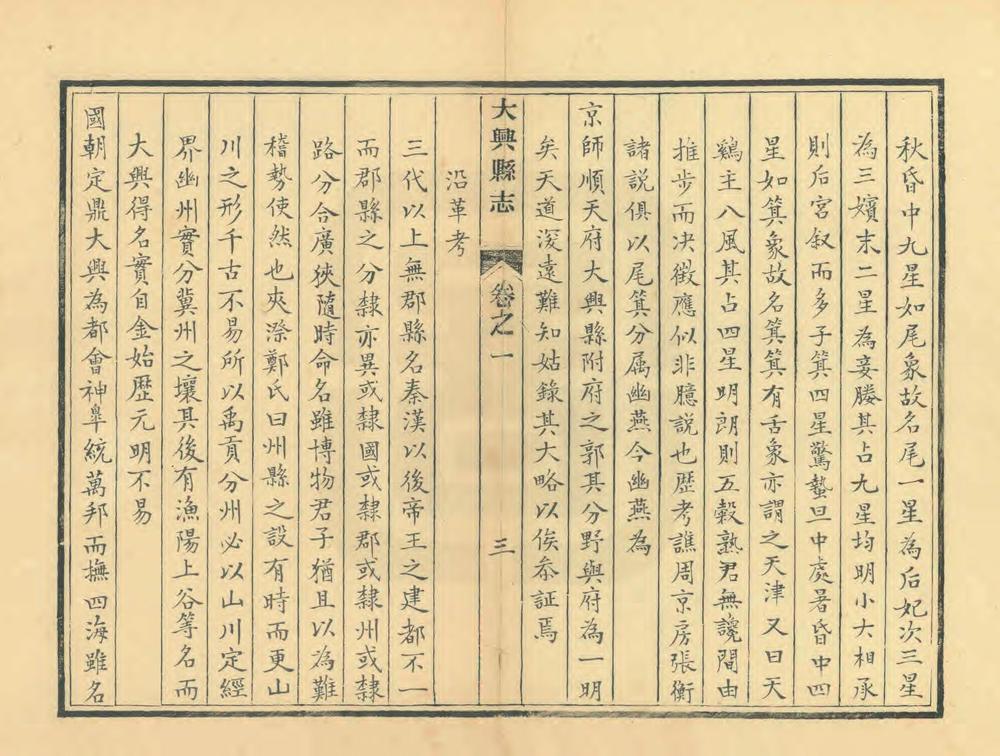 秋昏中九星如尾象故名尾一星為后妃次三星
為三嬪末二星為妾媵其占九星均明小大相承
則后宮叙而多子箕四星驚蟄旦中處暑昏中四
星如箕象故名箕箕有舌象亦謂之天津又曰天
鷄主八風其占四星明朗則五穀熟君無讒間由
推步而决徵應似非臆説也歴考譙周京房張衡
諸説俱以尾箕分属幽燕今幽燕為
京師順天府大興縣附府之郭其分野與府為一明
矣天道深遠難知姑錄其大略以俟叅証焉
大興縣志 卷之一 三
沿革考
三代以上無郡縣名秦漢以後帝王之建都不一
而郡縣之分隸亦異或隸國或隸郡或隸州或隸
路分合廣狹隨時命名雖博物君子猶且以為難
稽勢使然也夾漈鄭氏曰州縣之設有時而更山
川之形千古不易所以禹貢分州必以山川定經
界幽州實分冀州之壤其後有漁陽上谷等名而
大興得名實自金始歴元明不易
國朝定鼎大興為都會神臯統萬邦而撫四海雖名